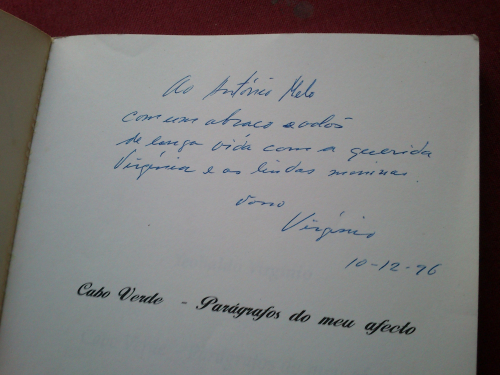 Ao António Melo
com um abraço e votos
de longa vida com a querida
Virgínia e as lindas meninas.
do vosso
Virgínio
10-12-96
Cabo Verde - Parágrafos do meu afecto